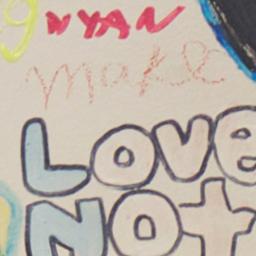 NYAN
make
Love
Not